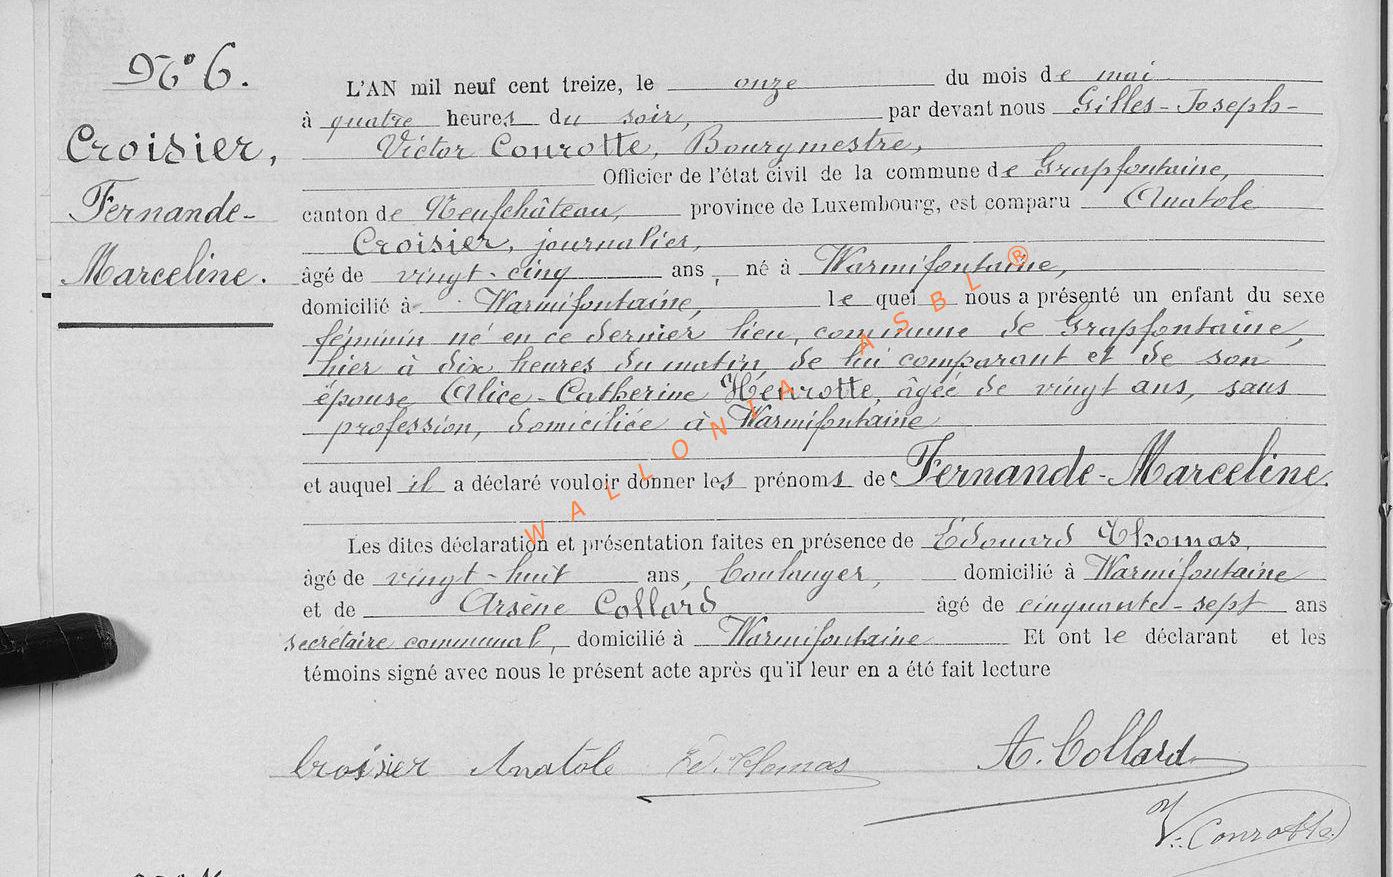 N° 6.
Croisier,
Fernande-
Marceline.
L'AN mil neuf cent treize, le onze du mois de mai
à quatre heures du soir, par devant nous Gilles-Joseph-
Victor Conrotte, Bourgmestre,
Officier de l'état civil de la commune de Grapfontaine,
canton de Neufchâteau, province de Luxembourg, est comparu Anatole
Croisier, journalier,
âgé de vingt-cinq ans, né à Warmifontaine,
domicilié à Warmifontaine, lequel nous a présenté un enfant du sexe
féminin né en ce dernier lieu, commune de Grapfontaine,
hier à dix heures du matin, de lui comparant et de son
épouse Alice-Catherine Henrotte, âgée de vingt ans, sans
profession, domiciliée à Warmifontaine
et auquel il a déclaré vouloir donner les prénoms de Fernande-Marceline.
Les dites déclaration et présentation faites en présence de Edouard Thomas,
âgé de vingt-huit ans, boulanger, domicilié à Warmifontaine
et de Arsène Collard âgé de cinquante-sept ans
secrétaire communal, domicilié à Warmifontaine Et ont le déclarant et les
témoins signé avec nous le présent acte après qu'il leur en a été fait lecture
Croisier Anatole Ed. Thomas A. Collard
V. Conrotte
WALLONIA ASBL ®